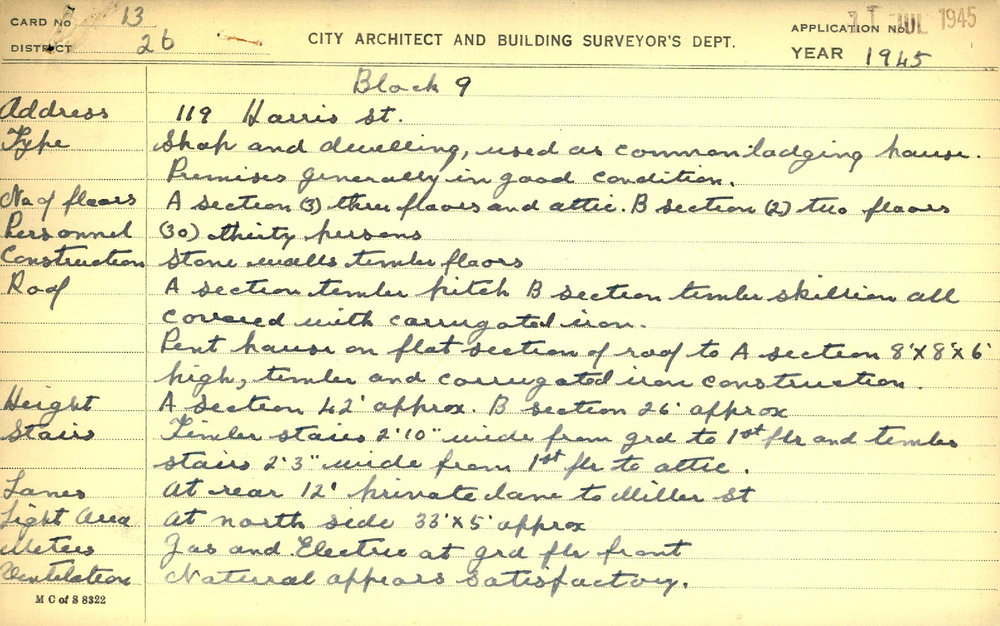 CARD No 13
DISTRICT 26
CITY ARCHITECT AND BUILDING SURVEYOR'S DEPT.
APPLICATION No.
11 JUL 1945
YEAR 1945
Block 9
Address 119 Harris St.
Type Shop and dwelling, used as common lodging house.
Premises generally in good condition.
No of floors A section (3) three floors and attic. B section (2) two floors
Personnel (30) thirty persons
Construction Stone walls timber floors
Roof A section timber pitch B section timber skillion all
covered with corrugated iron.
Pent house on flat section of roof to A section 8'X8'X6'
high, timber and corrugated iron construction.
Height A section 42' approx. B section 26' approx
Stairs Timber stairs 2'10" wide from grd to 1st flr and timber
stairs 2'3" wide from 1st flr to attic.
Lanes At rear 12' private lane to Miller St
Light Area At north side 33'X5' approx
Meters Gas and Electric at grd flr front
Ventilation Natural appears satisfactory.
M C of S 8322